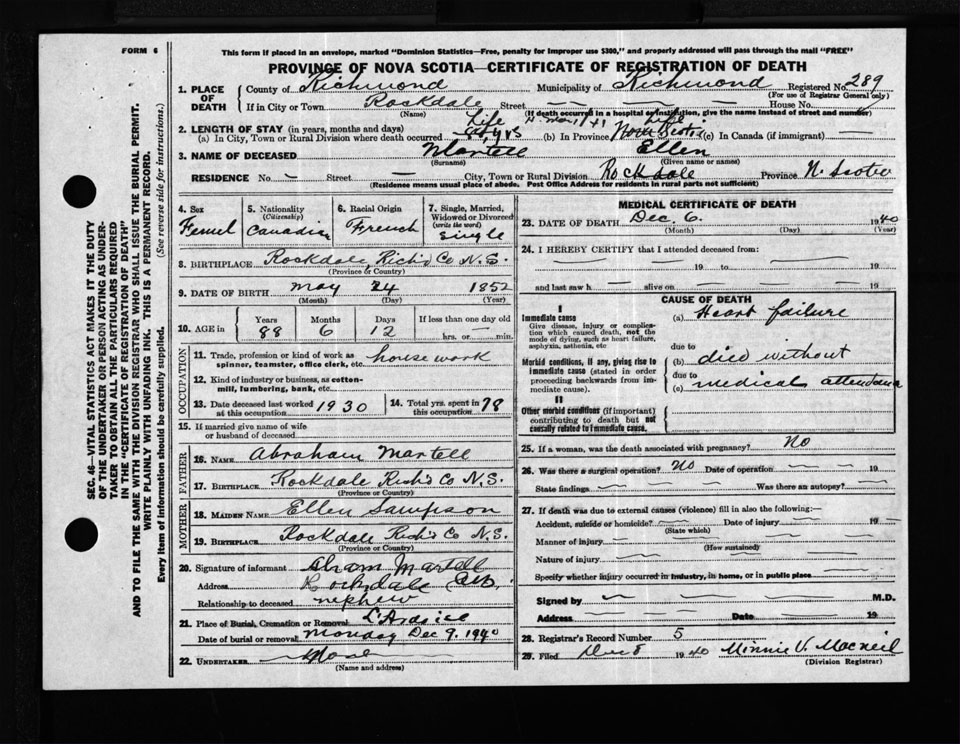 FORM 6
This form if placed in an envelope, marked "Dominion Statistics—Free, penalty for improper use $300," and properly addressed will pass through the mail "FREE"
PROVINCE OF NOVA SCOTIA—CERTIFICATE OF REGISTRATION OF DEATH
SEC. 46—VITAL STATISTICS ACT MAKES IT THE DUTY
OF THE UNDERTAKER OR PERSON ACTING AS UNDER-
TAKER TO OBTAIN ALL THE PARTICULARS REQUIRED
IN THE "CERTIFICATE OF REGISTRATION OF DEATH"
AND TO FILE THE SAME WITH THE DIVISION REGISTRAR WHO SHALL ISSUE THE BURIAL PERMIT.
WRITE PLAINLY WITH UNFADING INK. THIS IS A PERMANENT RECORD.
Every item of information should be carefully supplied. (See reverse side for instructions.)
1. PLACE OF DEATH County of Richmond Municipality of Richmond Registered No. 289
(For use of Registrar General only)
If in City or Town Rockdale Street — House No.
(Name) (If death occurred in a hospital or institution, give the name instead of street and number)
2. LENGTH OF STAY (in years, months and days)
(a) In City, Town or Rural Division where death occurred Life (b) In Province Nova Scotia (c) In Canada (if immigrant) —
3. NAME OF DECEASED Martell Ellen
(Surname) (Given name or names)
RESIDENCE No. — Street — City, Town or Rural Division Rockdale Province N. Scotia
(Residence means usual place of abode. Post Office Address for residents in rural parts not sufficient)
4. Sex Femel
5. Nationality (Citizenship) Canadian
6. Racial Origin French
7. Single, Married, Widowed or Divorced (write the word) Single
8. BIRTHPLACE Rockdale, Rich'd Co N.S.
(Province or Country)
9. DATE OF BIRTH May 24 1852
(Month) (Day) (Year)
10. AGE in Years 88 Months 6 Days 12 If less than one day old hrs. or — min.
OCCUPATION
11. Trade, profession or kind of work as spinner, teamster, office clerk, etc. house work
12. Kind of industry or business, as cotton-mill, lumbering, bank, etc.
13. Date deceased last worked at this occupation 1930 14. Total yrs. spent in this occupation 78
15. If married give name of wife or husband of deceased
FATHER
16. NAME Abraham Martell
17. BIRTHPLACE Rockdale Rich'd Co N.S.
(Province or Country)
MOTHER
18. MAIDEN NAME Ellen Sampson
19. BIRTHPLACE Rockdale Rich's Co N.S.
(Province or Country)
20. Signature of informant Abram Martell
Address Rockdale
Relationship to deceased nephew
21. Place of Burial, Cremation or Removal L'Ardoise
Date of burial or removal Monday Dec 9. 1940
22. UNDERTAKER None
(Name and address)
MEDICAL CERTIFICATE OF DEATH
23. DATE OF DEATH Dec 6. 1940
(Month) (Day) (Year)
24. I HEREBY CERTIFY that I attended deceased from:
— 19 to — 19
and last saw h — alive on — 19
CAUSE OF DEATH
Immediate cause (a) Heart failure
Give disease, injury or complication which caused death, not the mode of dying, such as heart failure, asphyxia, asthenia, etc
due to
Morbid conditions, if any, giving rise to immediate cause (stated in order proceeding backwards from immediate cause). (b) died without
due to
(c) medical attendance
II
Other morbid conditions (if important) contributing to death but not causally related to immediate cause.
25. If a woman, was the death associated with pregnancy? No
26. Was there a surgical operation? No Date of operation — 19
State findings — Was there an autopsy? —
27. If death was due to external causes (violence) fill in also the following:—
Accident, suicide or homicide? — Date of injury — 19 —
(State which)
Manner of injury —
(How sustained)
Nature of injury —
Specify whether injury occurred in industry, in home, or in public place —
Signed by — M.D.
Address — Date — 19
28. Registrar's Record Number 5
29. Filed Dec 8 1940 Minnie V. Macneil
(Division Registrar)